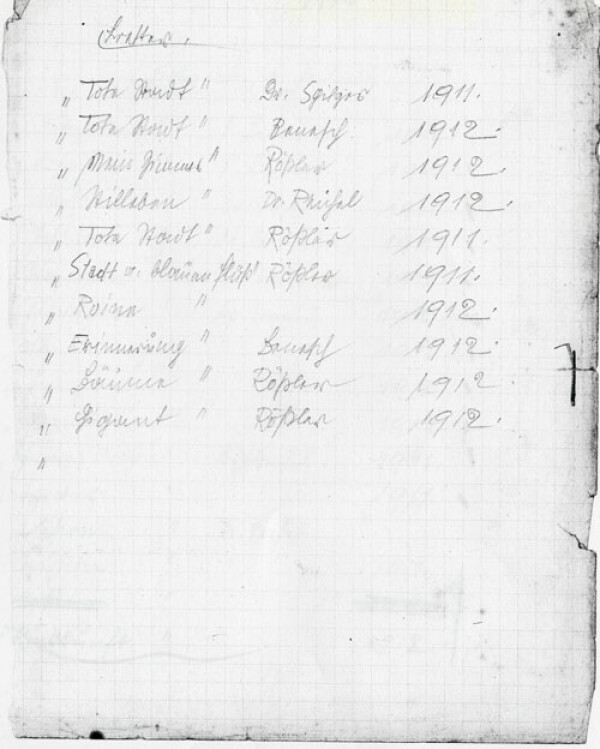 Bretter.
„ Tote Stadt " Dr. Spitzer 1911.
„ Tote Stadt " Benesch 1912.
„ Mein Zimmer " Rößler 1912.
„ Stilleben " Dr. Reichel 1912.
„ Tote Stadt " Rößler 1911.
„ Stadt a. blauen Fluß " Rößler 1911.
„ Ruine " 1912.
„ Erinnerung " Benesch 1912.
„ Bäume " Rößler 1912
„ Gigant " Rößler 1912.
„